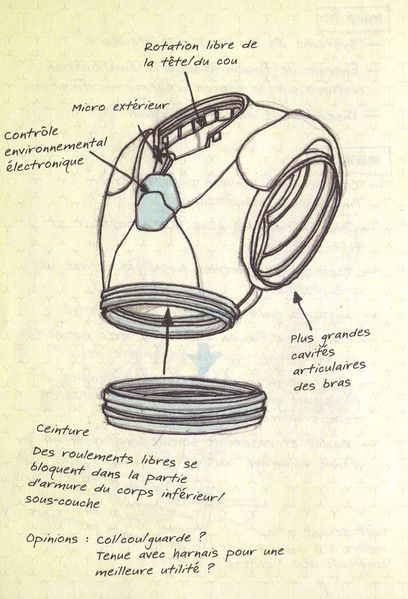 Rotation libre de
la tête/du cou
Micro extérieur
Contrôle
environnemental
électronique
Plus grandes
cavités
articulaires
des bras
Ceinture
Des roulements libres se
bloquent dans la partie
d'armure du corps inférieur/
sous-couche
Opinions : col/cou/guarde ?
Tenue avec harnais pour une
meilleure utilité ?